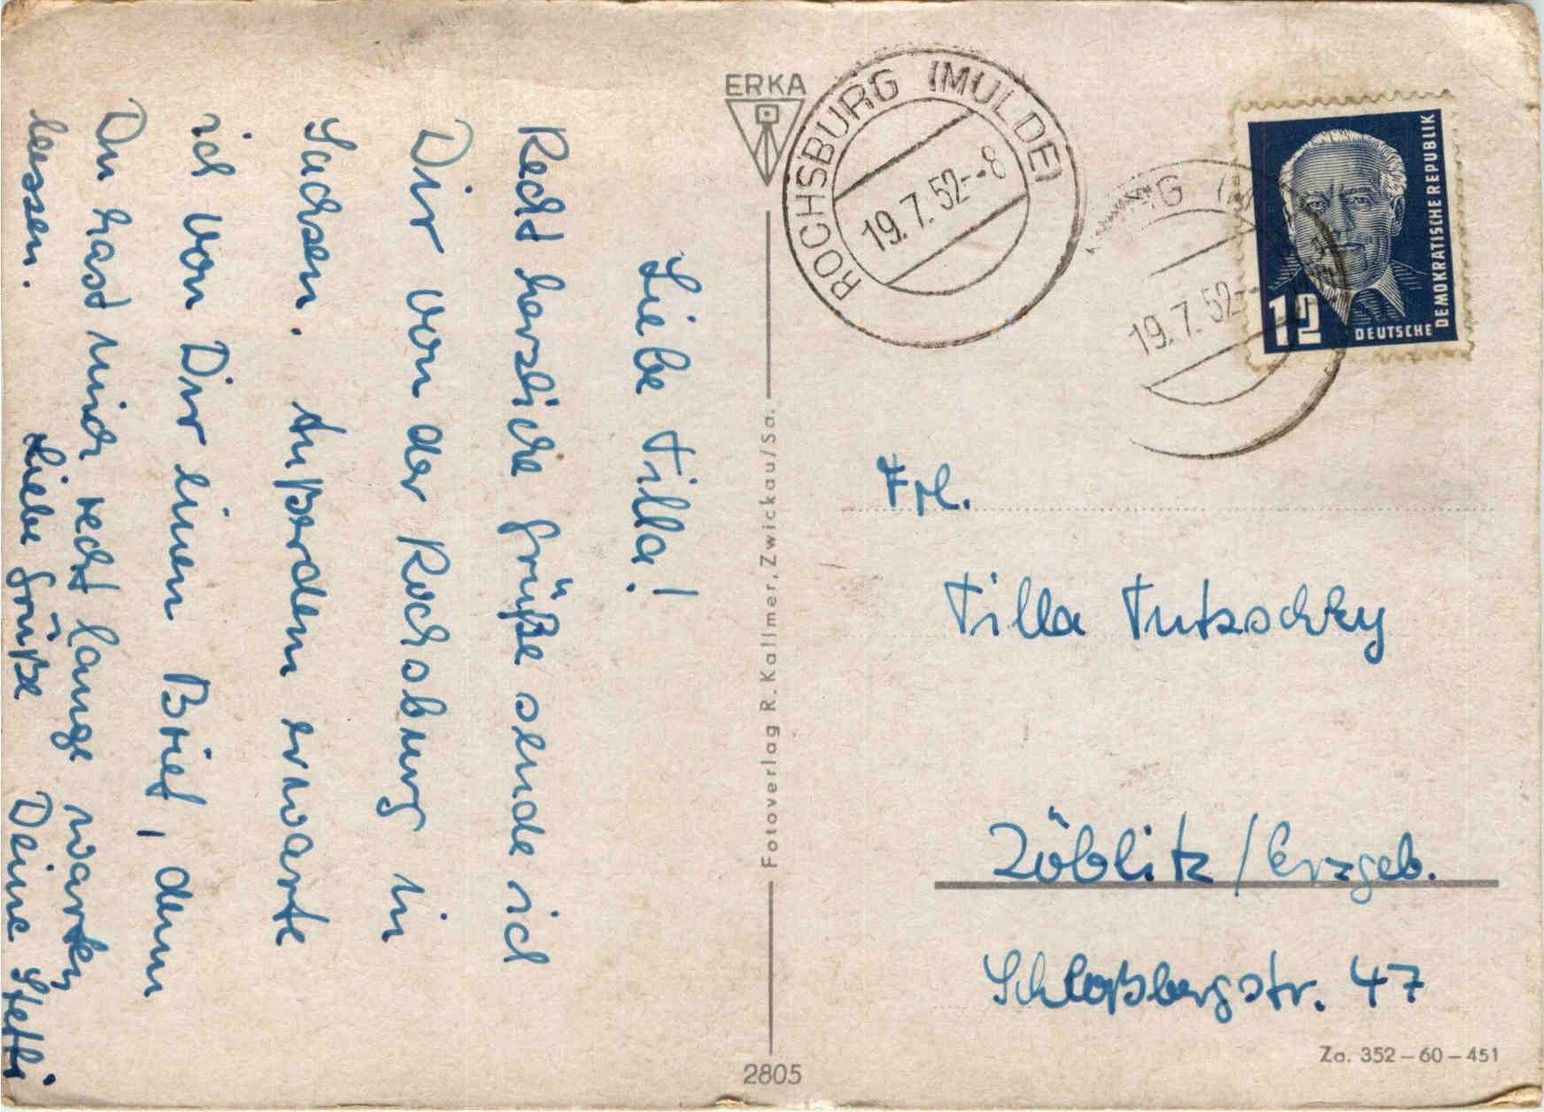 Liebe Tilla!
Recht herzliche Grüße sende ich
Dir von der Rochsburg in
Sachsen. Außerdem erwarte
ich von Dir einen Brief, denn
Du hast mich recht lange warten
lassen.
Liebe Grüße Deine Steffi.
ERKA
Fotoverlag R. Kallmer, Zwickau/Sa.
2805
ROCHSBURG (MULDE)
19.7.52--8
19.7.52-
12
DEUTSCHE
DEMOKRATISCHE REPUBLIK
Frl.
Tilla Tutzschky
Zöblitz/Erzgeb.
Schloßbergstr. 47
Za. 352-60-451